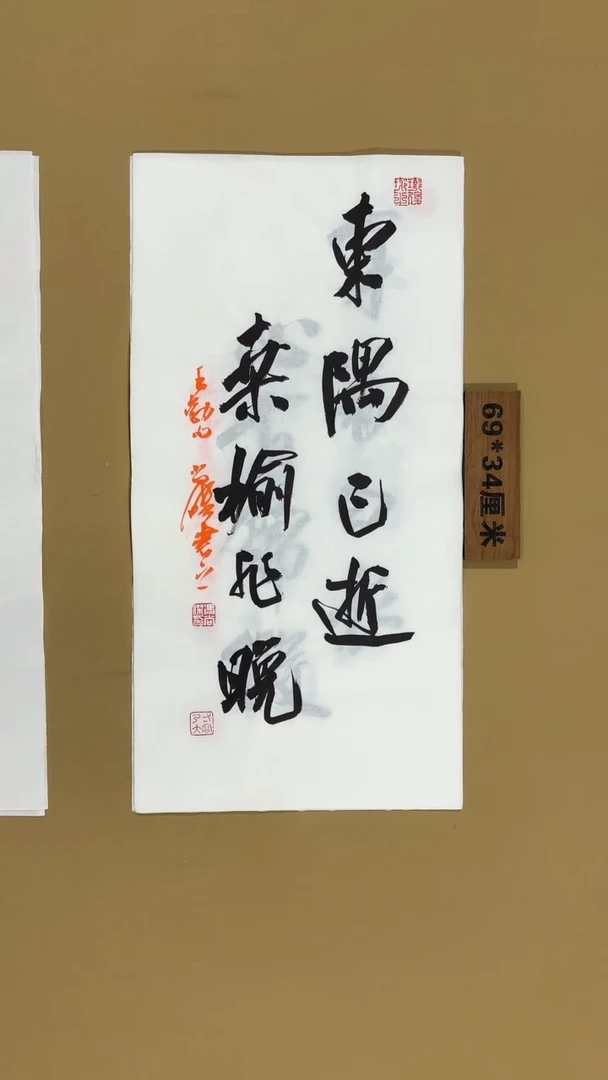 東隅已逝
桑榆非晚
王勃句
69*34厘米